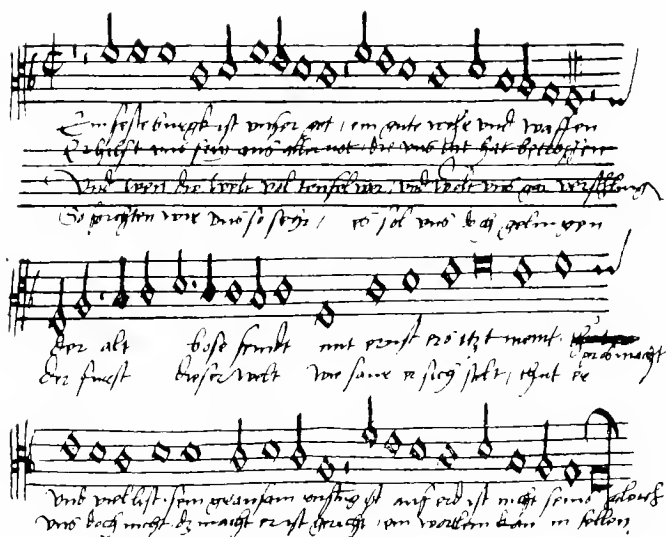 Ein feste burgk ist unser got, ein gute wehr und waffen
Er hilfft uns frey aus aller not die uns itzt hat betroffen
Und wen die welt vol teufel wer, und wolt uns gar verschlingen
So forchten wir uns so sehr, es sol uns doch gelingen
der alt bose feindt mit ernst ers itzt meint
gros macht
der furst dieser welt wie saur er sich stelt, thut er
und viel list sein grausam rustung ist auf erd ist nicht seins gleich
uns doch nicht dz macht er ist gericht, ein wortlein kan in fellen